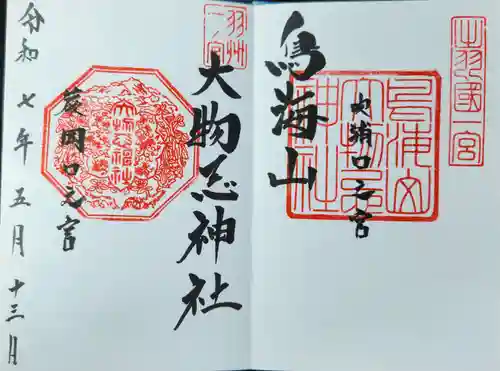 出羽國一宮
鳥海山
吹浦口之宮
鳥海山大物忌神社
羽州一宮
大物忌神社
蕨岡口之宮
大物忌神社
令和七年五月十三日